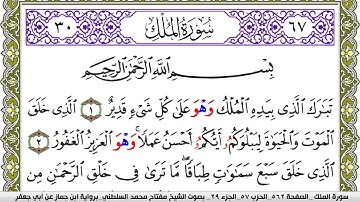 ٣٠ سُورَةُ المُلْكِ ٦٧
بِسْمِ اللَّهِ الرَّحْمَٰنِ الرَّحِيمِ
تَبَارَكَ الَّذِي بِيَدِهِ الْمُلْكُ وَهْوَ عَلَىٰ كُلِّ شَيْءٍ قَدِيرٌ ١ الَّذِي خَلَقَ
الْمَوْتَ وَالْحَيَوٰةَ لِيَبْلُوَكُمُ أَيُّكُمُ أَحْسَنُ عَمَلًا وَهْوَ الْعَزِيزُ الْغَفُورُ ٢
الَّذِي خَلَقَ سَبْعَ سَمَٰوَٰتٍ طِبَاقًا مَّا تَرَىٰ فِي خَلْقِ الرَّحْمَٰنِ مِن
سورة الملك _ الصفحة ٥٦٢ الحزب ٥٧ الجزء ٢٩ _ بصوت الشيخ مفتاح محمد السلطني برواية ابن جماز عن أبي جعفر